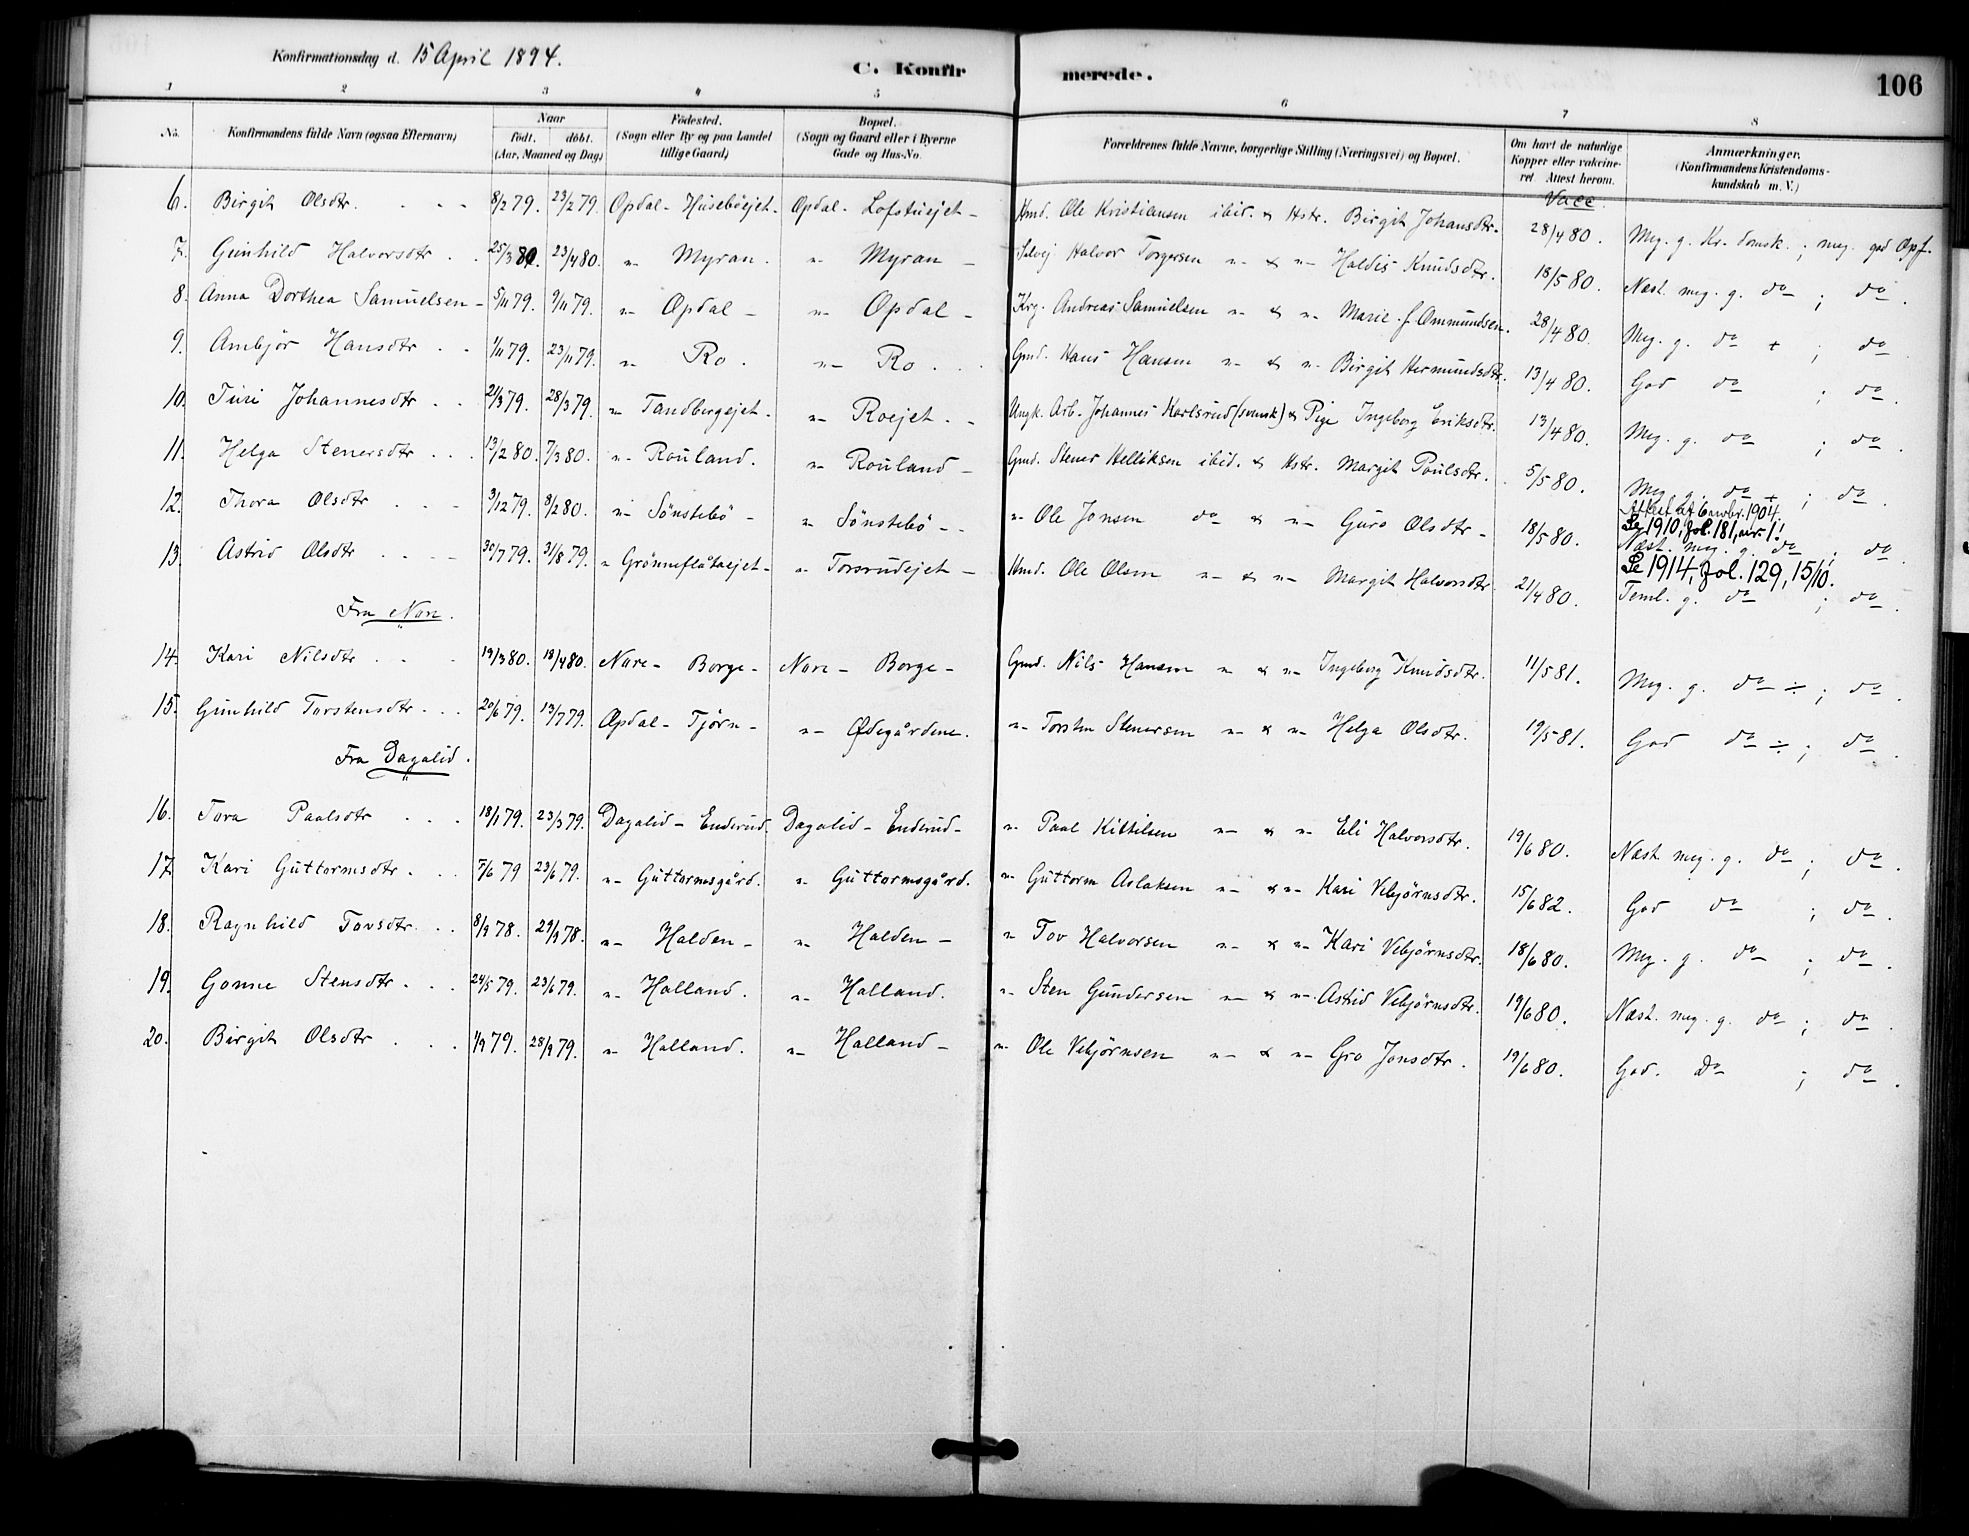 Konfirmationsdag d. 15 April 1894. C. Konfir merede. 106
1 2 3 4 5 6 7 8
No. Konfirmandens fulde Navn (ogsaa Efternavn) Naar født. døbt. (Aar, Maaned og Dag) Fødested. (Sogn eller By og paa Landet tillige Gaard) Bopæl. (Sogn og Gaard eller i Byerne Gade og Hus-No. Forældrenes fulde Navne, borgerlige Stilling (Næringsvei) og Bopæl. Om havt de naturlige Kopper eller vakcineret Attest herom. Anmærkninger. (Konfirmandens Kristendomskundskab m. V.)
Vacc.
6. Birgit Olsdtr. 8/2 79. 23/2 79. Opdal - Husebøejet. Opdal - Lofstuejet - Hmd. Ole Kristiansen ibid. & Hstr. Birgit Johansdtr. 28/4 80. Meg. g. Kr. domsk. ; meg. god Opf.
7. Gunhild Halvorsdtr 25/3 80. 23/4 80. " Myran. " Myran - Selvej Halvor Torgersen " & " Haldis Knudsdtr. 18/5 80. Næst. meg. g. do ; do.
8. Anna Dorthea Samuelsen - 5/11 79. 9/11 79. " Opdal - " Opdal - Krg. Andreas Samuelsen " & " Marie f. Ommundsen. 28/4 80. Meg. g. do + ; do
9. Ambjør Hansdtr 1/11 79. 23/11 79. " Ro. " Ro. Gmd. Hans Hansen " & " Birgit Hermundsdtr. 13/4 80. God do ; do.
10. Turi Johannesdtr 2/3 79. 28/3 79. " Tandbergejet. " Roejet. Ungk. Arb. Johannes Karlsrud (svensk) & Pige Ingeborg Eriksdtr. 13/4 80. Meg. g. do ; do.
11. Helga Stenersdtr 13/2 80. 7/3 80. " Rouland. " Rouland - Gmd. Stener Helliksen ibid. & Hstr. Margit Poulsdtr. 5/5 80. Meg. g. do + ; do.
12. Thora Olsdtr 3/12 79. 8/2 80. " Sønstebø - " Sønstebø - " Ole Jonsen do & " Guro Olsdtr - 18/5 80. Attest 6 novbr. 1904. Se 1910, fol. 181, nr. 1! Næst. meg. g. do ; do.
13. Astrid Olsdtr 30/7 79. 31/8 79. " Grønneflåtaejet - " Torsrudejet - Hmd. Ole Olsen " & " Margit Halvorsdtr 21/4 80. Se 1914, fol. 129, 15/10! Teml. g. do ; do.
Fra Nore.
14. Kari Nilsdtr 19/3 80. 18/4 80. Nore - Borge - Nore - Borge - Gmd. Nils Hansen " & " Ingeborg Knudsdtr. 11/5 81. Meg. g. do ÷ ; do.
15. Gunhild Torstensdtr 20/6 79. 13/7 79. Opdal - Tjørn - " Ødegårdene. " Torsten Stenersen " & " Helga Olsdtr. 19/5 81. God do ÷ ; do.
Fra Dagalid.
16. Tora Paalsdtr 18/1 79. 23/3 79. Dagalid - Enderud. Dagalid - Enderud - " Paal Kittilsen " & " Eli Halvorsdtr. 19/6 80. Næst. meg. g. do ; do.
17. Kari Guttormsdtr. 5/6 79 23/6 79. " Guttormsgård. " Guttormsgård. " Guttorm Aslaksen " & " Kari Vebjørnsdtr. 15/6 82. God do ; do.
18. Ragnhild Tovsdtr. 8/9 78. 29/9 78. " Halden - " Halden - " Tov Halvorsen " & " Kari Vebjørnsdtr. 18/6 80. Meg. g. do ; do.
19. Gonne Stensdtr. 24/5 79. 23/6 79. " Halland. " Halland. " Sten Gundersen " & " Astrid Vebjørnsdtr. 19/6 80. Næst. meg. g. do ; do.
20. Birgit Olsdtr 1/9 79. 28/9 79. " Halland. " Halland - " Ole Vebjørnsen " & " Gro Jonsdtr. 19/6 80. God. Do ; do.